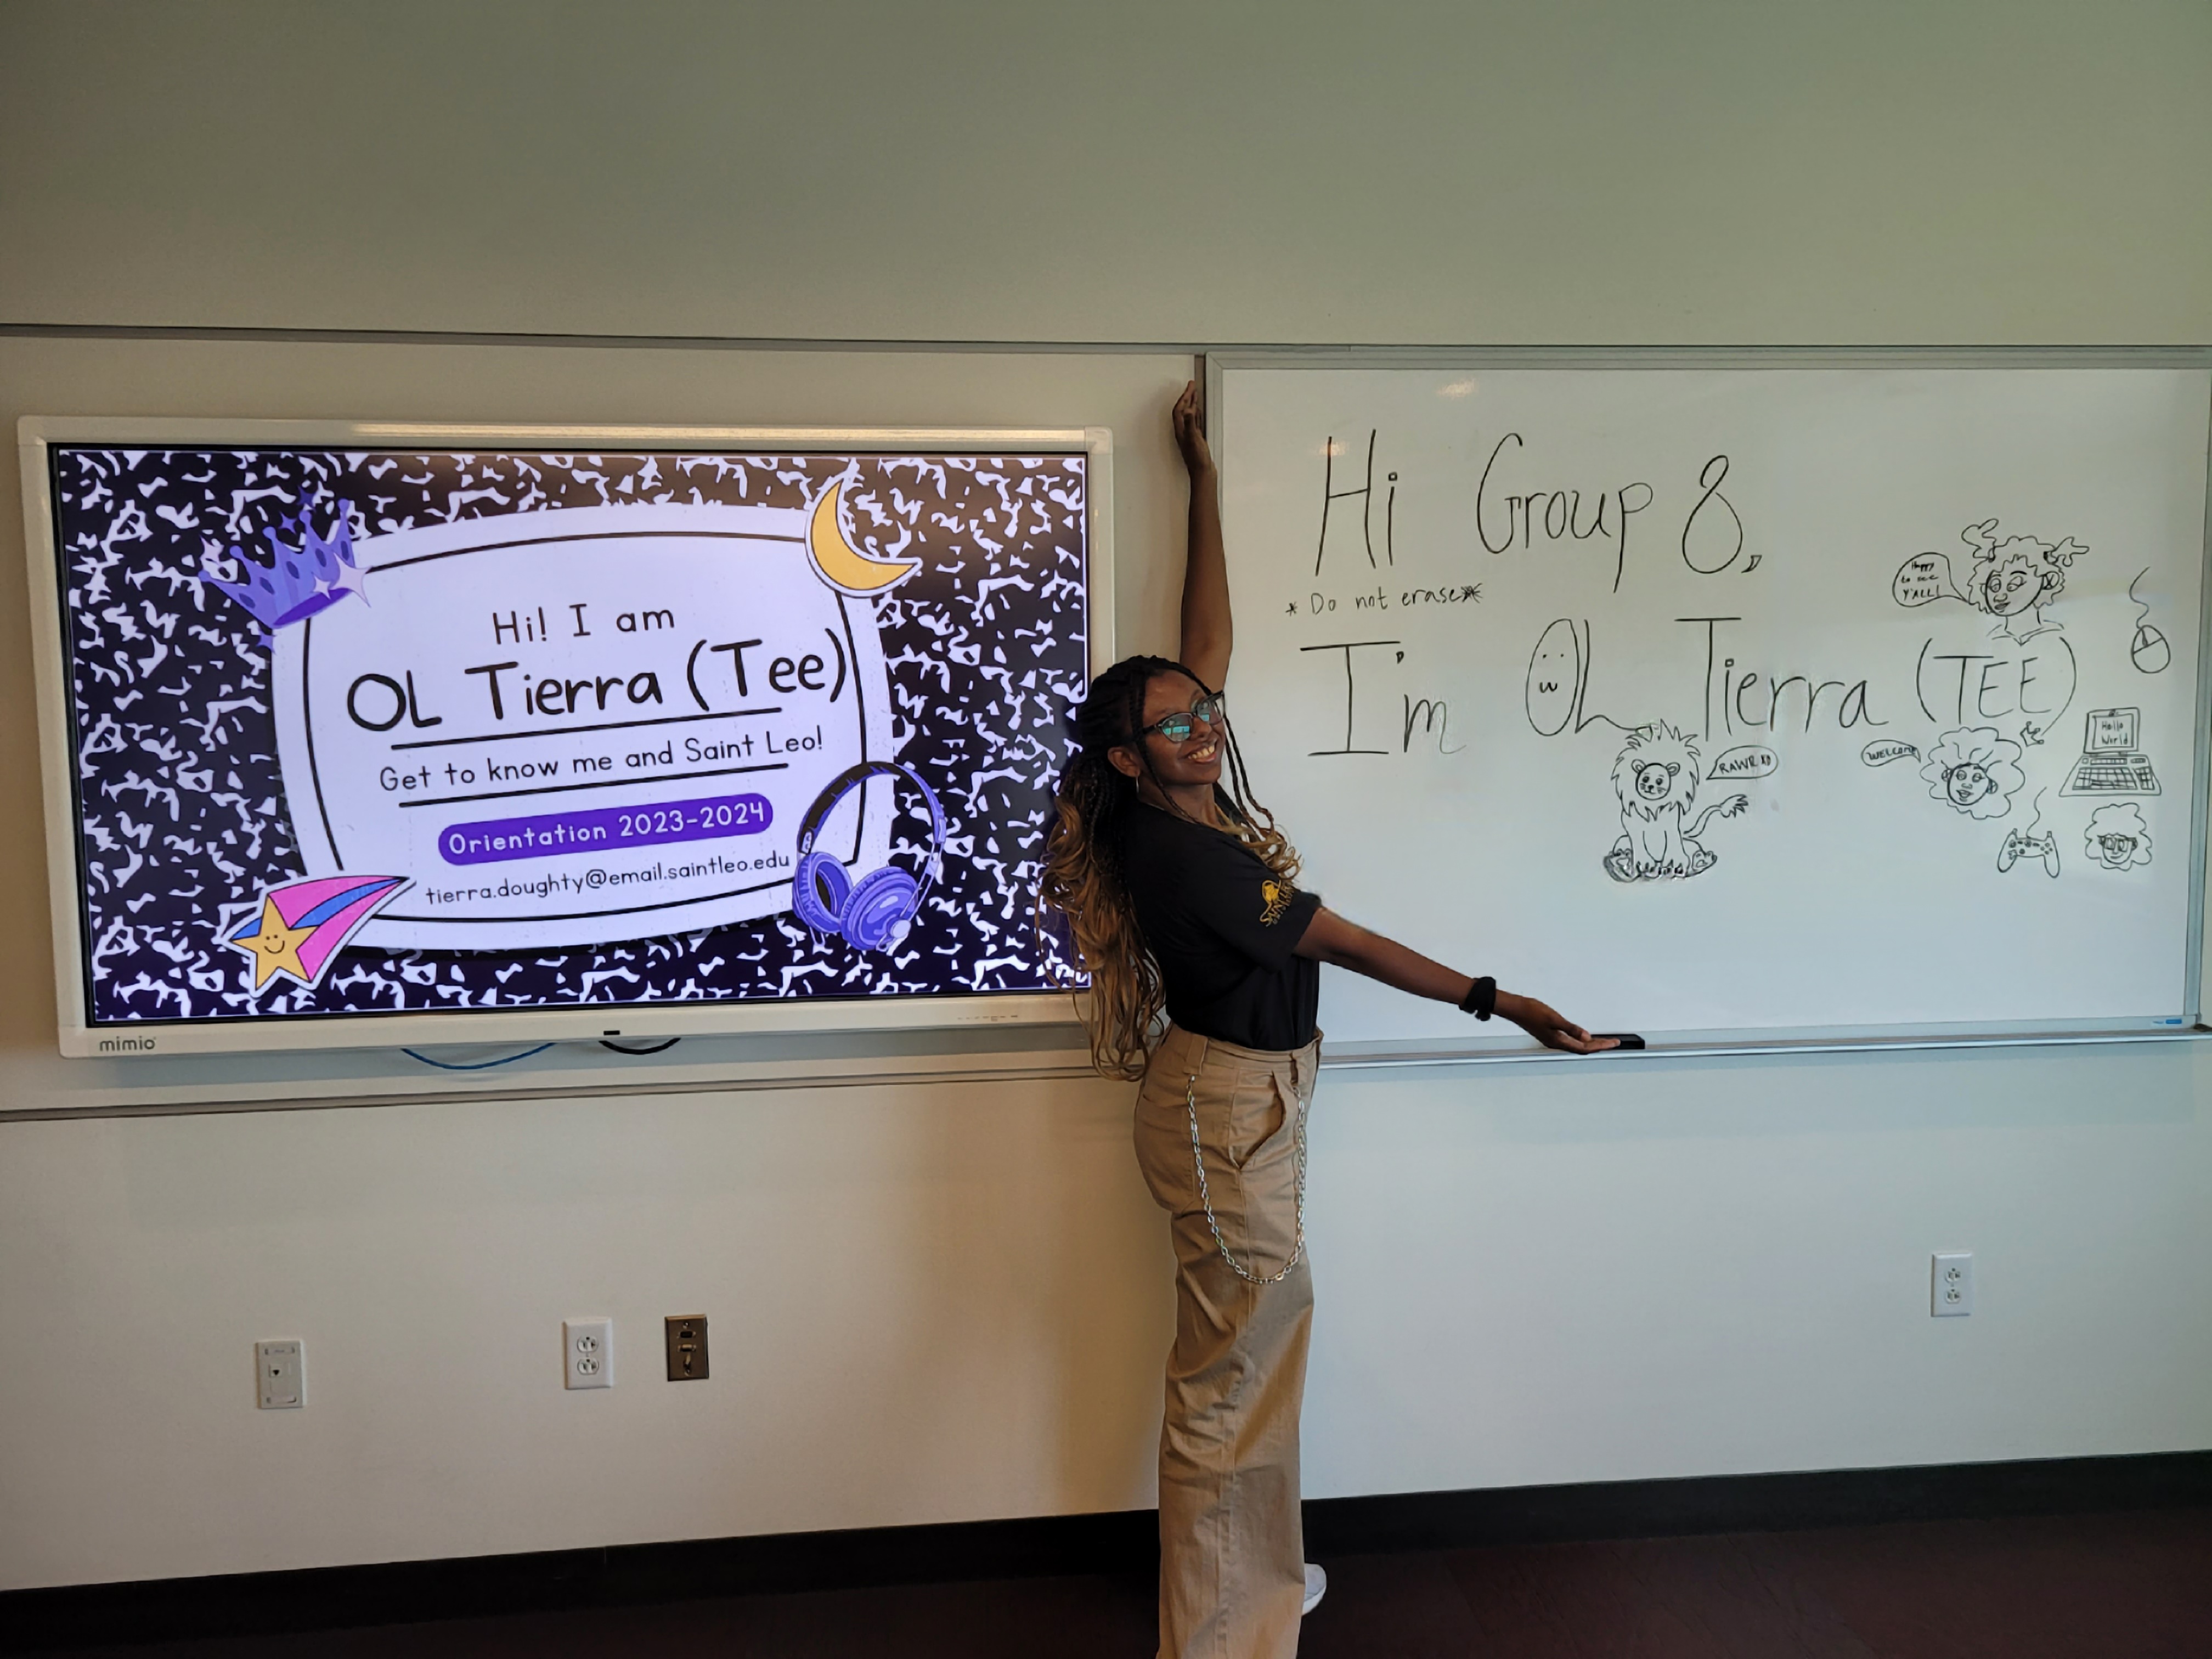 Hi! I am
OL Tierra (Tee)
Get to know me and Saint Leo!
Orientation 2023-2024
tierra.doughty@email.saintleo.edu
mimio
Hi Group 8,
* Do not erase*
I'm OL Tierra (TEE)
Happy
to see
Y'ALL!
RAWR XD
WELCOME
Hello
World
SAINT LEO